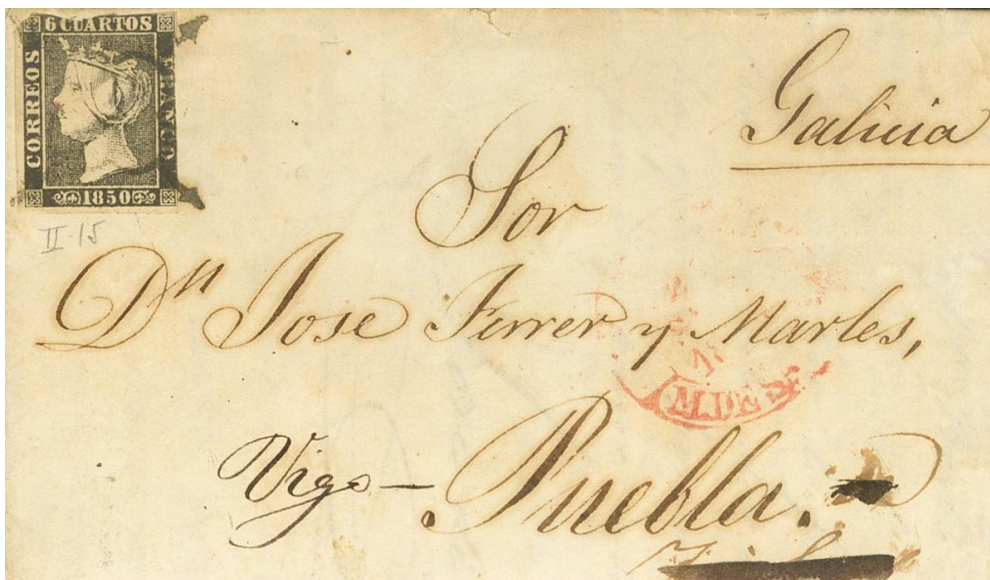 6 CUARTOS
CORREOS
FRANCO
1850
II-15
Galicia
Sor
Dn Jose Ferrer y Marles,
Vigo — Puebla.
M.DE